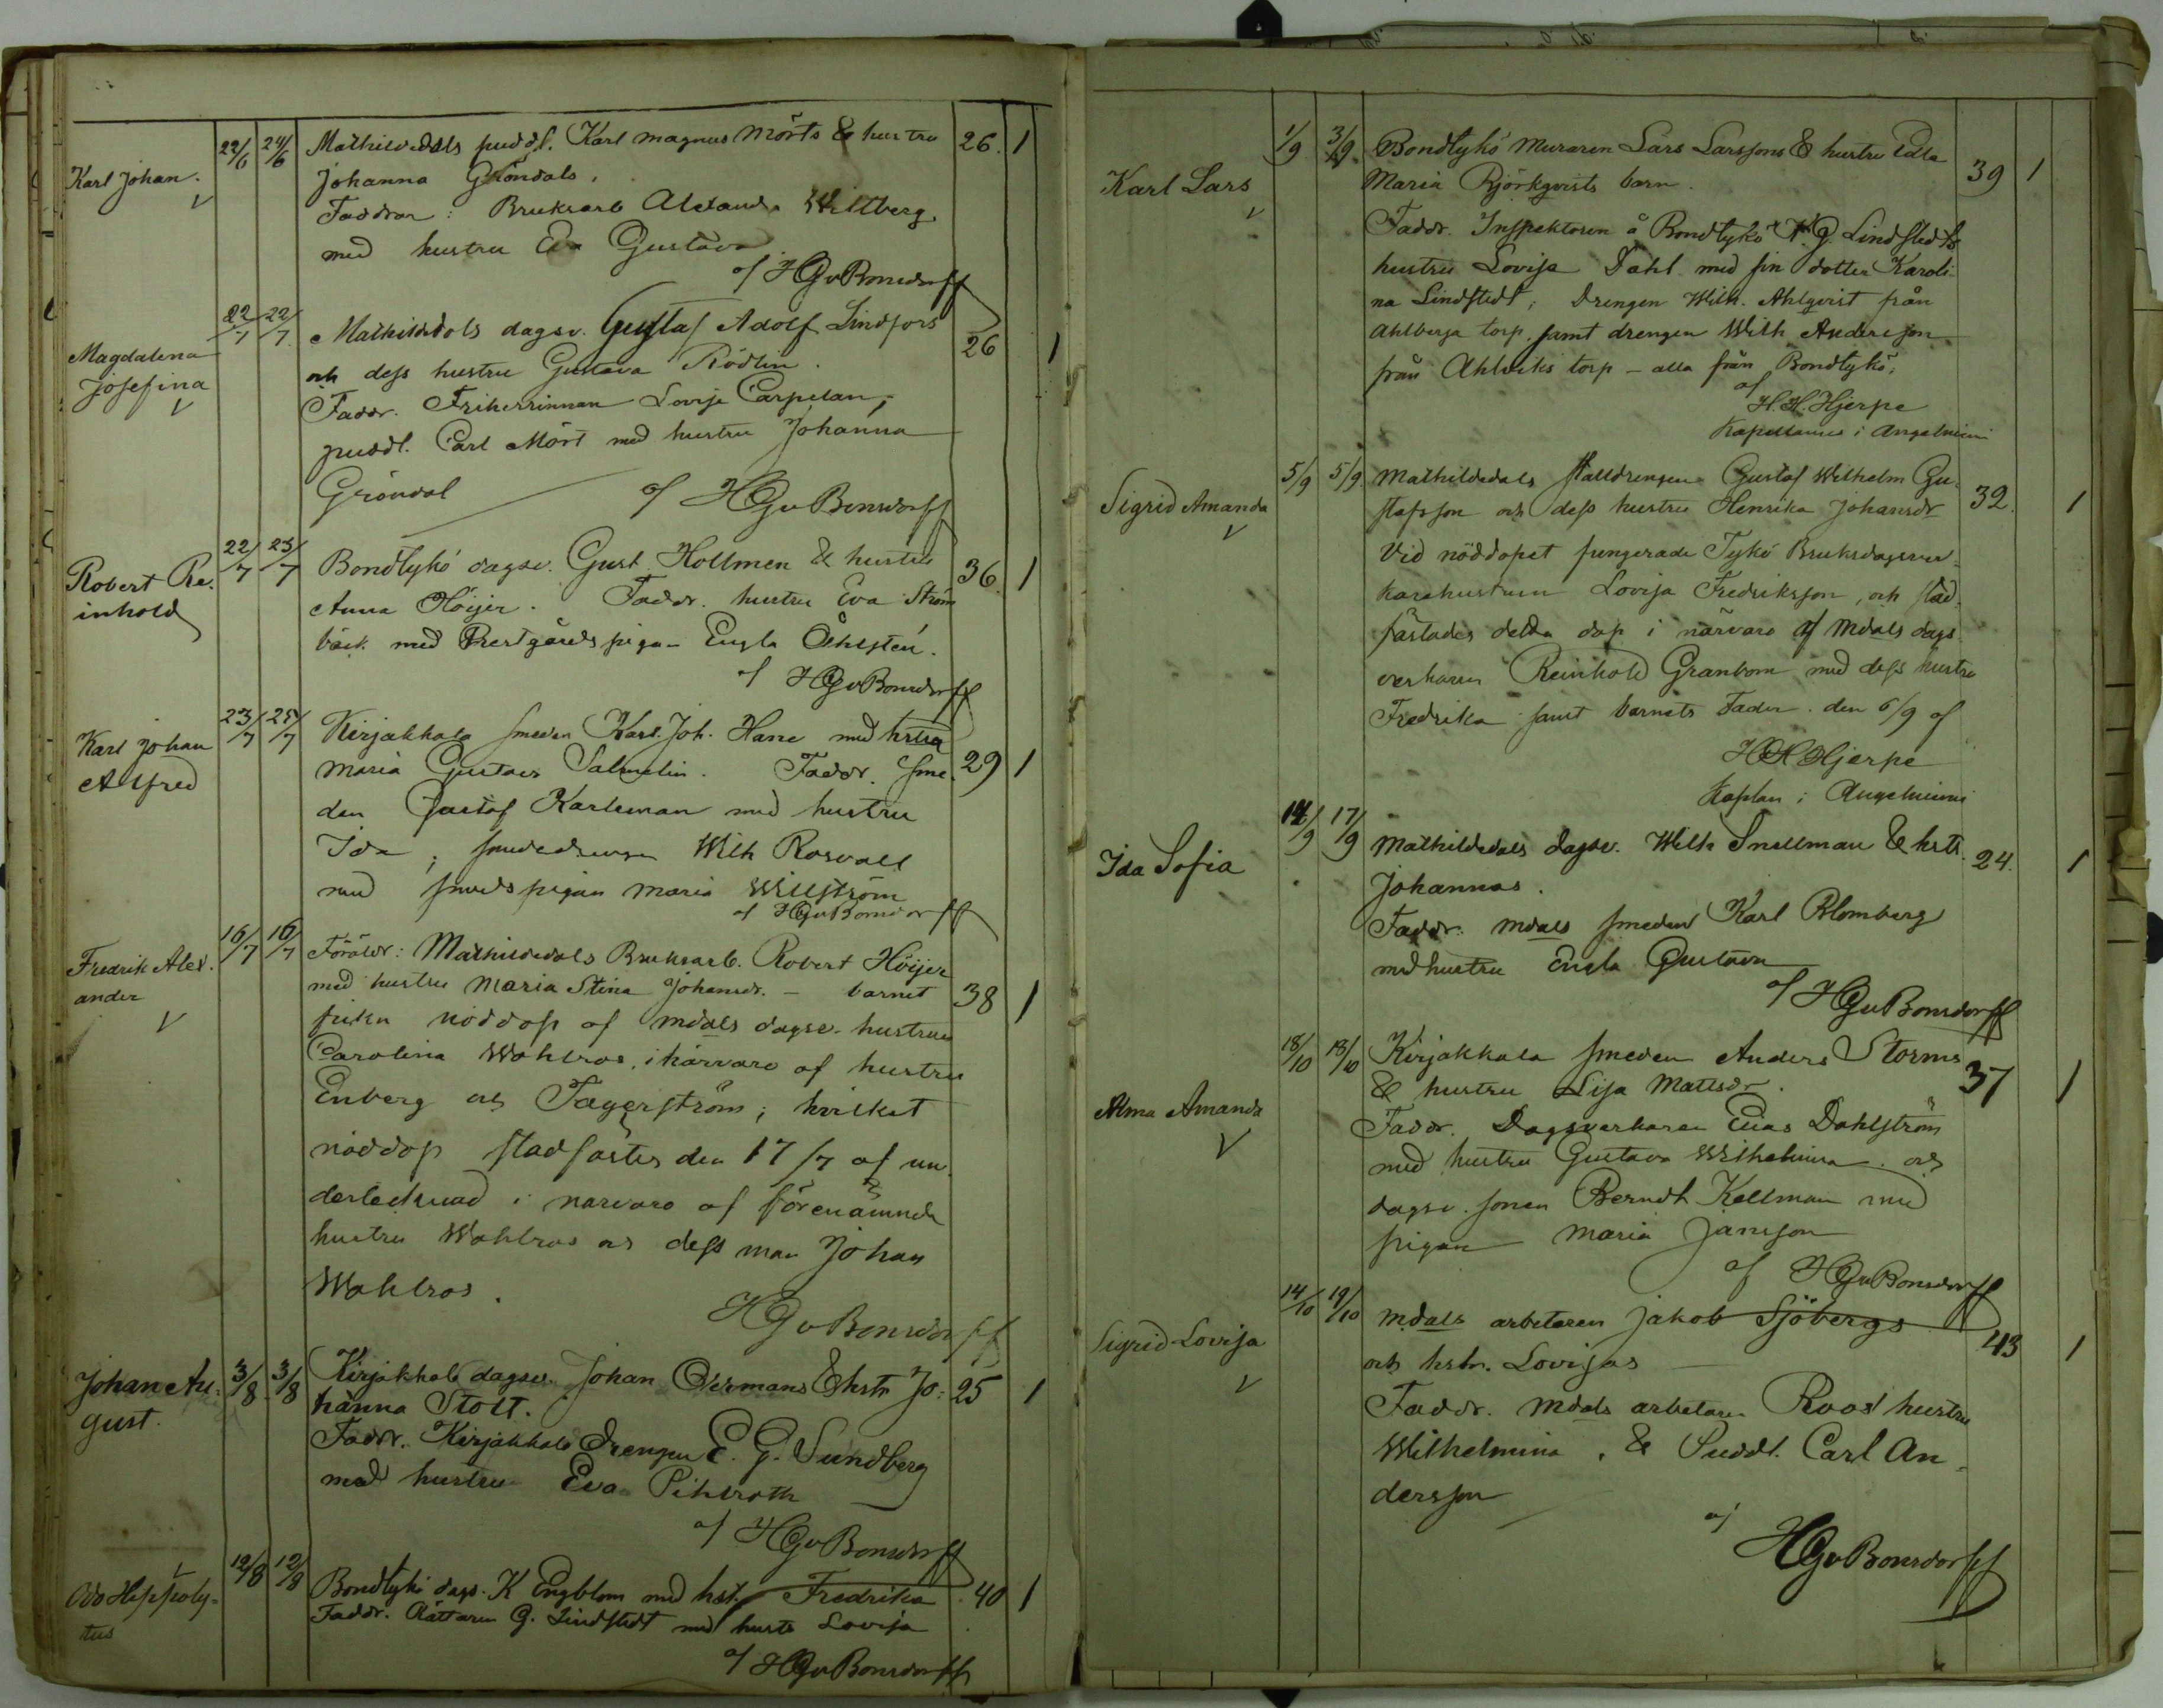 Karl Johan.
22/6 24/6
Mathildedals puddl. Karl Magnus Mörts & hustru 26. 1
Johanna Gröndals.
Faddrar: Bruksarb Alexand. Willberg.
med hustru Eva Gustava
af HGvBonsdorff
Magdalena
Josefina
22/7 22/7
Mathildedals dagsv. Gustaf Adolf Lindfors 26 1
och dess hustru Gustava Rödlin.
Faddr. Friherrinnan Lovisa Carpelan,
puddl. Carl Mört med hustru Johanna
Gröndal
af HGvBonsdorff
Robert Re-
inhold
22/7 23/7
Bondtykö dagsv. Gust. Hollmen & hustru 36. 1
Anna Höijer. Faddr. hustru Eva Ström
bäck med Prestgårdspigan Engla Öhlstén.
af HGvBonsdorff
Karl Johan
Alfred
23/7 25/7
Kirjakkala smeden Karl. Joh. Hane med hstru
Maria Gustava Salmelin. Faddr. Sme- 29 1
den Gustaf Karleman med hustru
Ida, smededrengen Wilh Rosvall
med smedspigan Maria Willström
af HGvBonsdorff
Fredrik Alex-
ander
16/7 16/7
Föräldr: Mathildedals Bruksarb. Robert Höijer
med hustru Maria Stina Johansdr. - barnet 38 1
fick nöddop af Mdals dagsv. hustrun
Carolina Wahlros, i närvaro af hustru
Enberg och Fagerström; hvilket
nöddop stadfästes den 17/7 af un-
dertecknad i närvaro af förenämnda
hustru Wahlros och dess man Johan
Wahlros.
HGvBonsdorff
Johan Au-
gust.
3/8 3/8
Kirjakkala dagsv. Johan Öhrmans & hstr Jo- 25 1
hanna Stolt.
Faddr. Kirjakkala Drengen E. G. Sundberg
med hustru Eva Pihlroth
af HGvBonsdorff
Odo Hippoly-
tus
12/8 12/8
Bondtykö dags. K Engblom med hst. Fredrika 40 1
Faddr. Rättaren G. Lindstedt med hustr Lovisa
af HGvBonsdorff
Karl Lars
1/9 3/9
Bondtykö Muraren Lars Larssons & hustru Edla 39 1
Maria Björkqvists barn.
Faddr. Inspektoren å Bondtykö K. G. Lindstedts
hustru Lovisa Dahl med sin dotter Karoli-
na Lindstedt; Drengen Wilh. Ahlqvist från
Ahlberga torp. samt drengen Wilh Andersson
från Ahlviks torp - alla från Bondtykö,
af
H. H. Hjerpe
Kapellanus i Angelniemi
Sigrid Amanda
5/9 5/9
Mathildedals stalldrengen Gustaf Wilhelm Gu- 32. 1
stafsson och dess hustru Henrika Johansdr
Vid nöddopet fungerade Tykö Bruksdagsver-
karehustrun Lovisa Fredriksson, och stad-
fästades detta dop i närvaro af Mdals dags-
verkaren Reinhold Granbom med dess hustru
Fredrika samt barnets Fader. den 6/9 af
HH Hjerpe
Kaplan i Angelniemi
Ida Sofia
14/9 17/9
Mathildedals dagsv. Wilh Snellman & hstr. 24. 1
Johannas.
Faddr. Mdals smeden Karl Blomberg
med hustru Engla Gustava
af HGvBonsdorff
Alma Amanda
18/10 18/10
Kirjakkala smeden Anders Storms 37 1
& hustru Lisa Mattsdr.
Faddr. Dagsverkaren Elias Dahlström
med hustru Gustava Wilhelmina och
dagsv. sonen Berndt Kellman med
pigan Maria Jansson
af HGvBonsdorff
Sigrid Lovisa
14/10 19/10
Mdals arbetaren Jakob Sjöbergs 43 1
och hstr. Lovisas
Faddr. Mdals arbetaren Roos' hustru
Wilhelmina, & Puddl. Carl An-
dersson
af
HGvBonsdorff